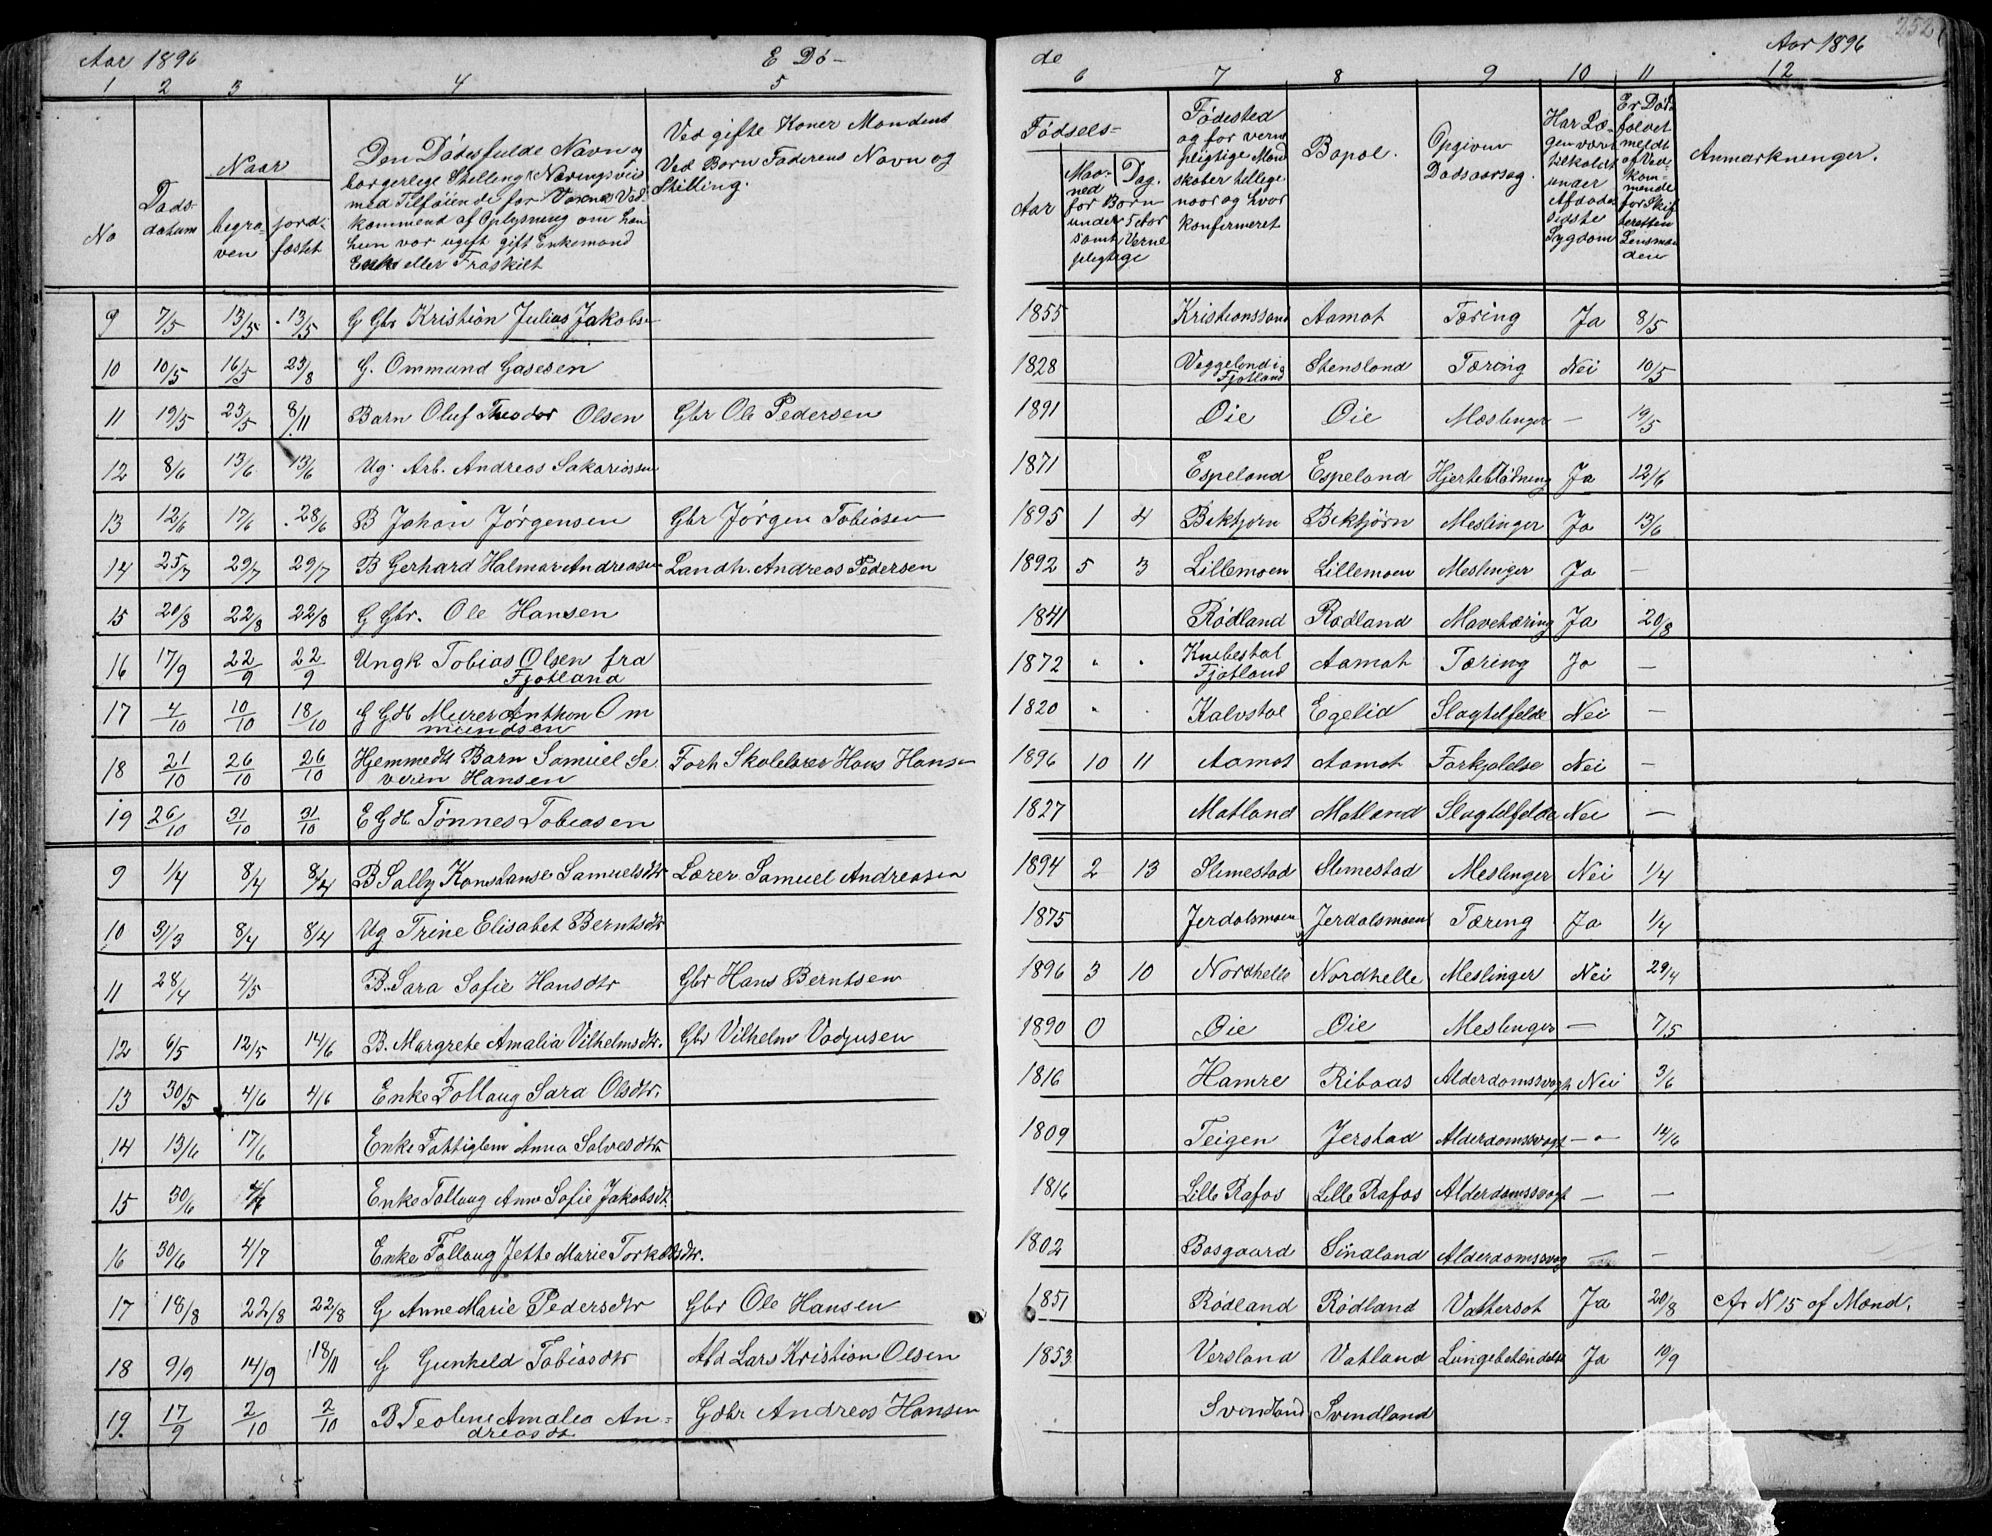 252
Aar 1896 E Dö- de Aar 1896
1 2 3 4 5 6 7 8 9 10 11 12
No
Dødsdatum
Naar
begraven
jordfæstet
Den Dödesfulde Navn og
borgerlige Stelling (Næringsvei
med Tilföiende for Voxne Vedkommend
af Oplysning om han
hun var ugift gift Enkemand
Enke eller Fraskilt
Ved gifte Koner Mandens
Ved Born Faderens Navn og
Stilling.
Födsels-
Aar
Maaned Dag.
for Børn
under 5 Aar
samt Verne
pligtige
Födested
og for verne
pligtige Mand
skaber tillige
naar og hvor
konfirmeret
Bopæl.
Opgiven
Dødsaarsag.
Har Lægen
været
tilkaldt
under
Afdødes
sidste
Sygdom
Er Døds
faldet
meldt
af Vedkommende
for Skifteretten
Lensmanden
Anmærkninger.
9 7/5 13/5 13/5 G Gbr Kristian Julius Jakobsen 1855 Kristianssand Aamot Tæring Ja 8/5
10 10/5 16/5 23/8 G. Ommund Gasesen 1828 Veggeland i Fjotland Stensland Tæring Nei 10/5
11 19/5 23/5 8/11 Barn Oluf Theodor Olsen Gbr Ole Pedersen 1891 Øie Øie Mæslinger — 19/5
12 8/6 13/6 13/6 Ug. Arb. Andreas Sakariassen 1871 Espeland Espeland Hjerteblødning Ja 12/6
13 12/6 17/6 28/6 B Johan Jørgensen Gbr Jørgen Tobiasen 1895 1 4 Bekkjorn Bekkjørn Meslinger Ja 13/6
14 25/7 29/7 29/7 B Gerhard Halmar Andreasen Landh. Andreas Pedersen 1892 5 3 Lillemoen Lillemoen Meslinger Ja —
15 20/8 22/8 22/8 G Gbr. Ole Hansen 1841 Rødland Rødland Mavetæring Ja 20/8
16 17/9 22/9 22/9 Ungk Tobias Olsen fra Fjotland 1872 " " Knibestøl Fjotland Aamot Tæring Ja —
17 4/10 10/10 18/10 G Gdb Murer Anthon Ommundsen 1820 " " Kalvstøl Egelid Slagtilfelde Nei —
18 21/10 26/10 26/10 Hjemmedt Barn Samuel Severin Hansen Forh Skolelærer Hans Hansen 1896 10 11 Aamot Aamot Forkjølelse Nei —
19 26/10 31/10 31/10 E Gdb Tønnes Tobiasen 1827 Matland Matland Slagtilfelde Nei —
9 1/4 8/4 8/4 B Sally Konstanse Samuelsdtr Lærer Samuel Andreasen 1894 2 13 Slimestad Slimestad Meslinger Nei 1/4
10 31/3 8/4 8/4 Ug Trine Elisabet Berntsdtr 1875 Jerdalsmoen Jerdalsmoen Tæring Ja 1/4
11 28/4 4/5 B. Sara Sofie Hansdtr Gbr Hans Berntsen 1896 3 10 Nordhelle Nordhelle Meslinger Nei 29/4
12 6/5 12/5 14/6 B. Margrete Amalia Vilhelmsdtr. Gbr Vilhelm Vadjusen 1890 0 Øie Øie Meslinger — 7/5
13 30/5 4/6 4/6 Enke Follaug Sara Olsdtr. 1816 Hamre Ribaas Alderdomssvagh Nei 3/6
14 13/6 17/6 Enke Fattiglem Anna Salvesdtr 1809 Teigen Jerstad Alderdomssvagt — 14/6
15 30/6 4/7 Enke Follaug Anne Sofie Jakobsdt. 1816 Lille Rafos Lille Rafos Alderdomssvagt — —
16 30/6 4/7 Enke Follaug Jette Marie Torkelsdtr. 1802 Bosgaard Sindland Alderdomssvag — —
17 18/8 22/8 22/8 G Anne Marie Pedersdtr Gbr Ole Hansen 1851 Rødland Rødland Vattersot Ja 20/8 cfr N 15 af Mænd.
18 9/9 14/9 18/11 G Gunheld Tobiasdtr Abd Lars Kristian Olsen 1853 Versland Vatland Lungebetændelse Ja 10/9
19. 17/9 2/10 2/10 B Teoline Amalia Andreasdt Gdbr Andreas Hansen Svendland Svendland